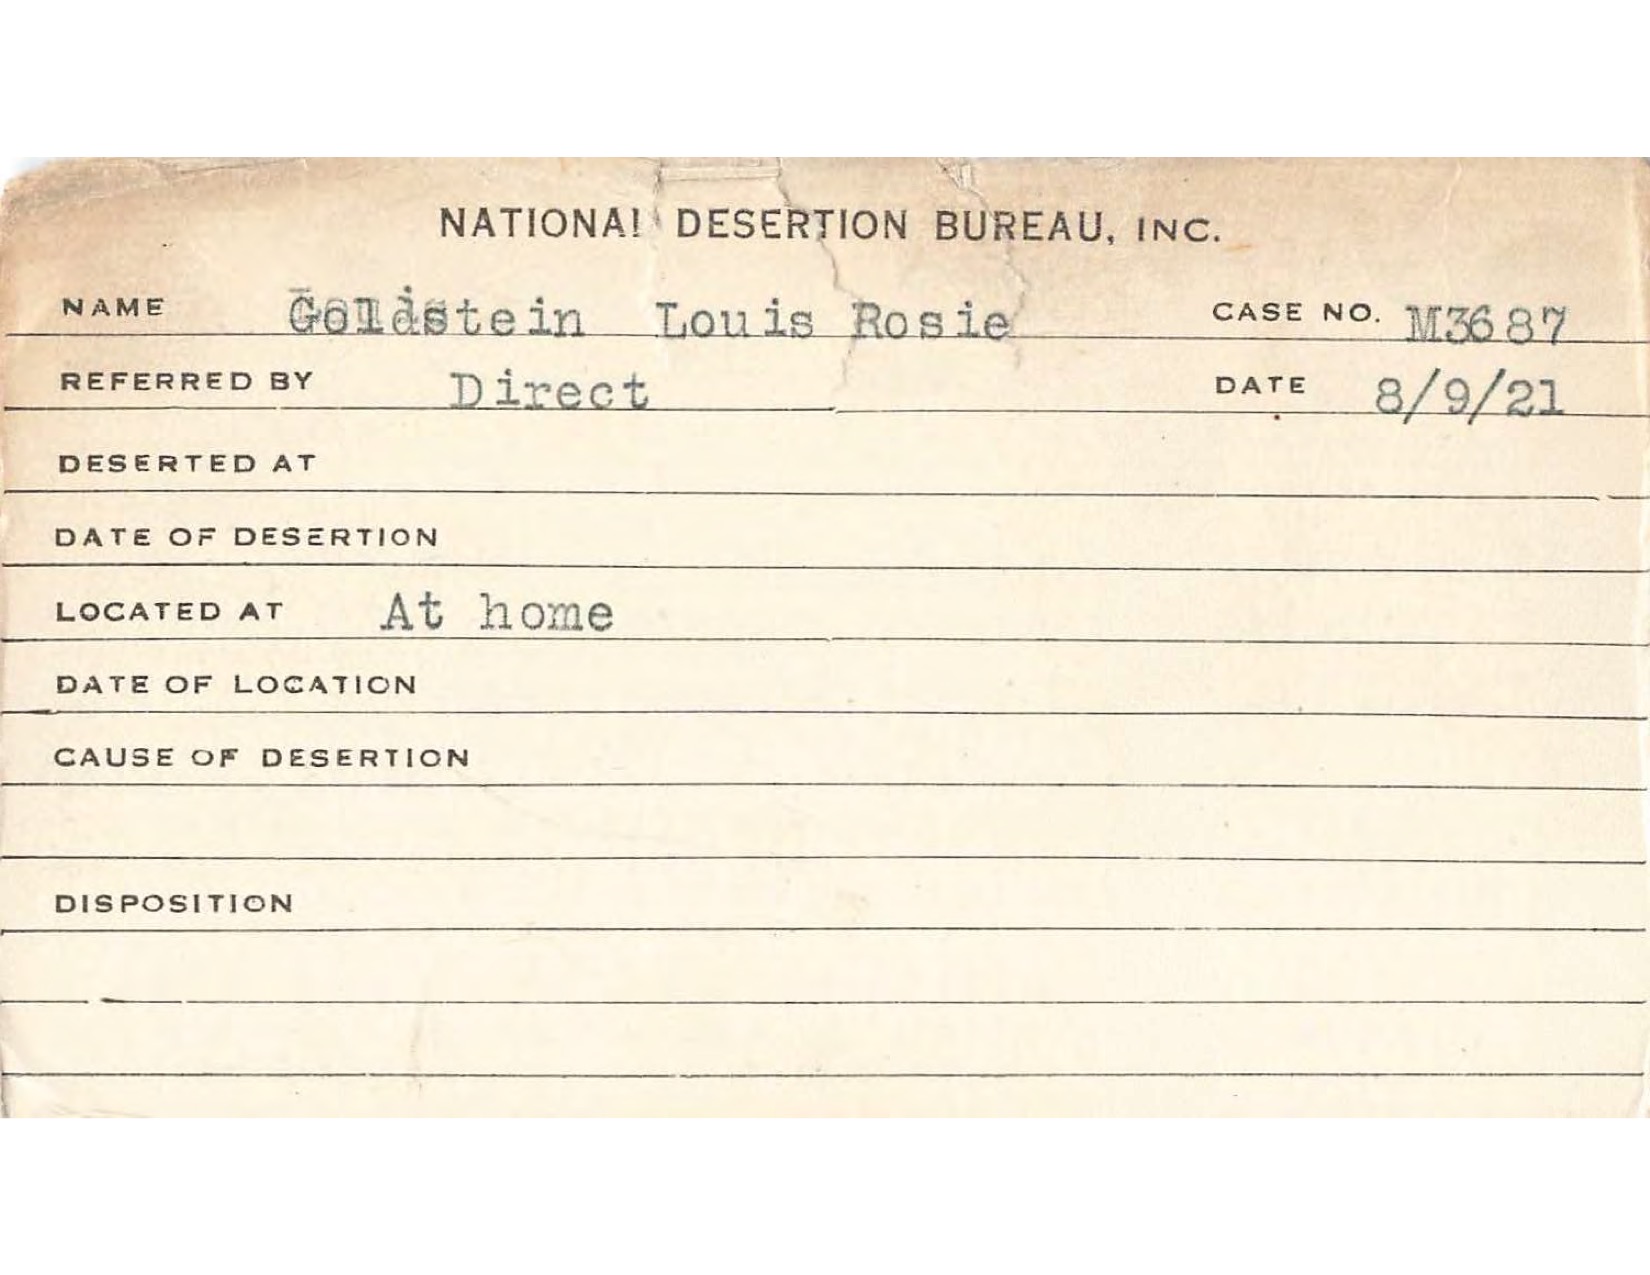 NATIONAL DESERTION BUREAU, INC.
NAME Goldstein Louis Rosie CASE NO. M3687
REFERRED BY Direct DATE 8/9/21
DESERTED AT
DATE OF DESERTION
LOCATED AT At home
DATE OF LOCATION
CAUSE OF DESERTION
DISPOSITION